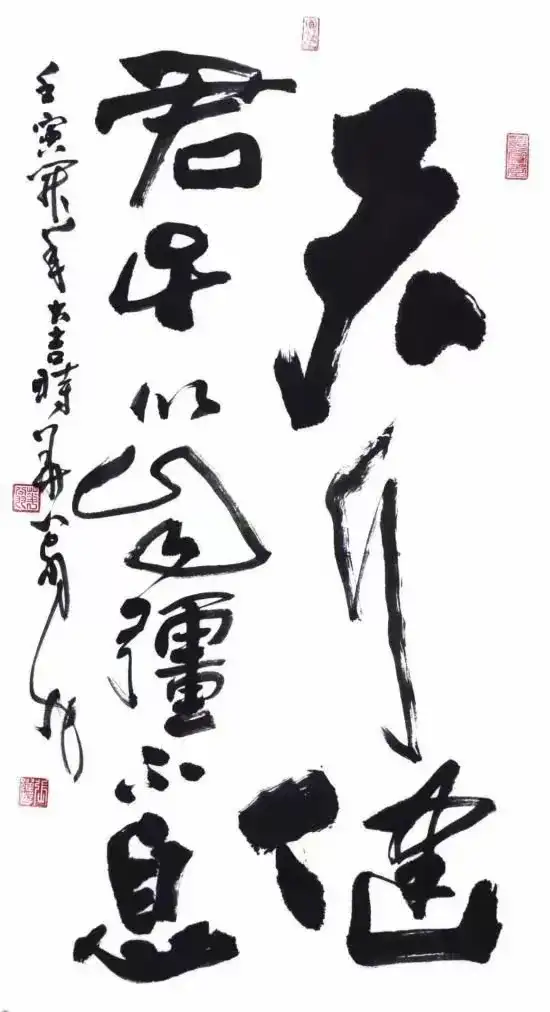 天行健
君子以自彊不息
壬寅開年大吉時